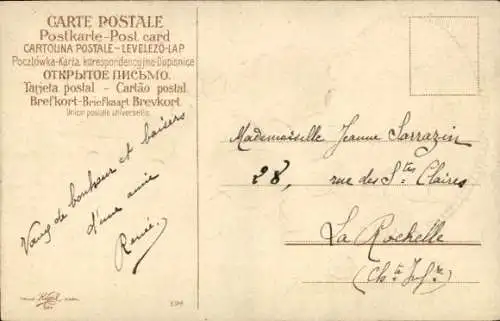 CARTE POSTALE
Postkarte-Post card
CARTOLINA POSTALE-LEVELEZÖ-LAP
Poczlówka-Karta korespondencyjna-Dopisnice
ОТКРЫТОЕ ПИСЬМО.
Tarjeta postal - Cartão postal
Brefkort-Briefkaart Brevkort
Union postale universelle.
Vœux de bonheur et baisers
d'une amie
Renée.
Mademoiselle Jeanne Sarrazin
28, rue des Stes Claires
La Rochelle
(Chte Infre)